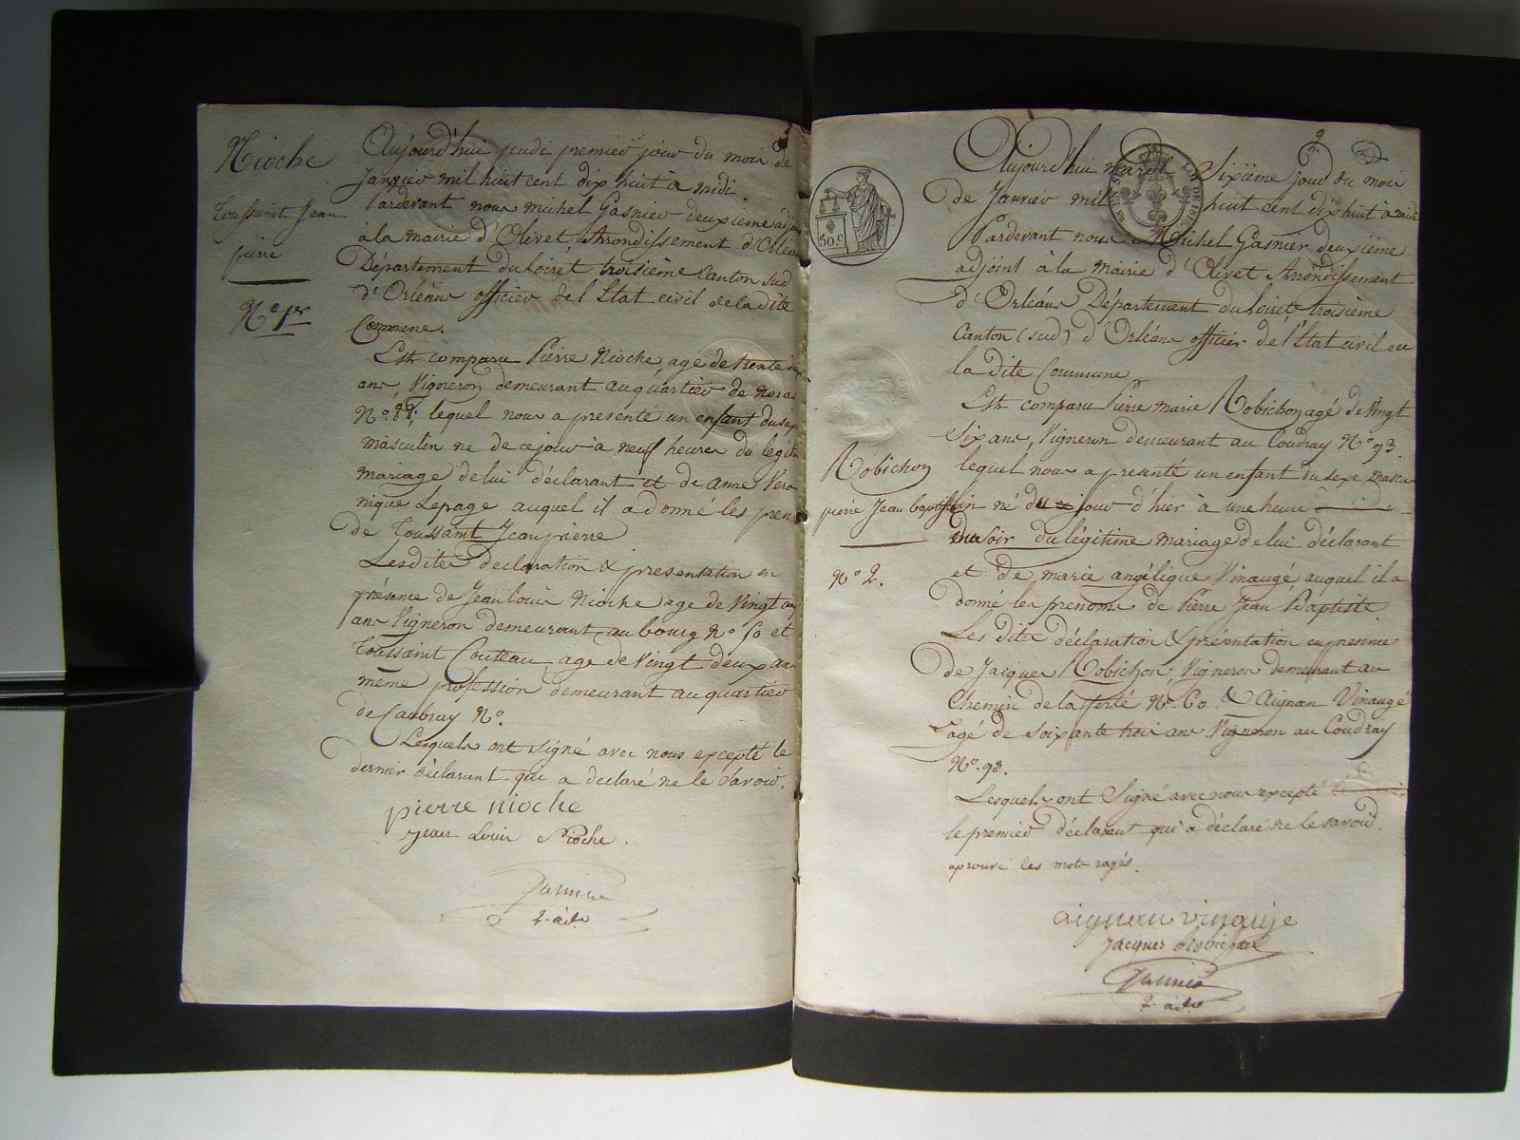 Nioche
Toussaint Jean
pierre
N.o 1er
Aujourd'hui jeudi premier jour du mois de
Janvier mil huit cent dix huit à midi
Pardevant nous michel Gasnier deuxieme
à la mairie d'Olivet, Arondissement d'Orléans
Département du Loiret troisième Canton Sud
d'Orléans officier de l'Etat civil de la dite
Commune.
Est comparu Pierre Nioche, age de trente
ans Vigneron demeurant au quartier de
N.o lequel nous a présenté un enfant du sexe
masculin né de ce jour à neuf heures du
mariage de lui déclarant et de Anne Vero
nique Lepage auquel il a donné les
de Toussaint Jean pierre
Lesdites déclaration & présentation en
présence de Jean louis Nioche age de Vingt
ans Vigneron demeurant au bourg N.o 50 et
Toussaint Couteau, age de Vingt deux ans
même profession demeurant au quartier
de Caubray N.o
Lesquels ont signé avec nous excepté le
dernier déclarant qui a declaré ne le Savoir.
pierre nioche
jean Louis Nioche.
2. adt
2
50 c
Aujourd'hui mardi Sixième jour du mois
de Janvier mil huit cent dix huit à midi
Pardevant nous Michel Gasnier deuxième
adjoint à la mairie d'Olivet Arrondissement
d'Orléans Département du Loiret troisième
Canton (sud) d'Orléans officier de l'Etat civil de
la dite Commune
Est comparu Pierre marie Robichon agé de Vingt
Six ans, Vigneron demeurant au Coudray N.o 93.
lequel nous a présenté un enfant du sexe mascu
Robichon
pierre Jean baptiste
N.o 2.
lin né du jour d'hier à une heure
du soir du légitime mariage de lui déclarant
et de marie angélique Vinaugé auquel il a
donné les prenoms de Pierre Jean Baptiste
Les dites déclaration & présentation en presence
de Jacques Robichon, Vigneron demeurant au
Chemin de la ferté N.o 60. & Aignan Vinaugé
agé de Soixante trois ans Vigneron au Coudray
N.o 93.
Lesquels ont Signé avec nous excepté
le premier déclarant qui a déclaré ne le savoir.
aprouvé les mots rayés.
aignan vinauje
Jacques Robichon
2. adt